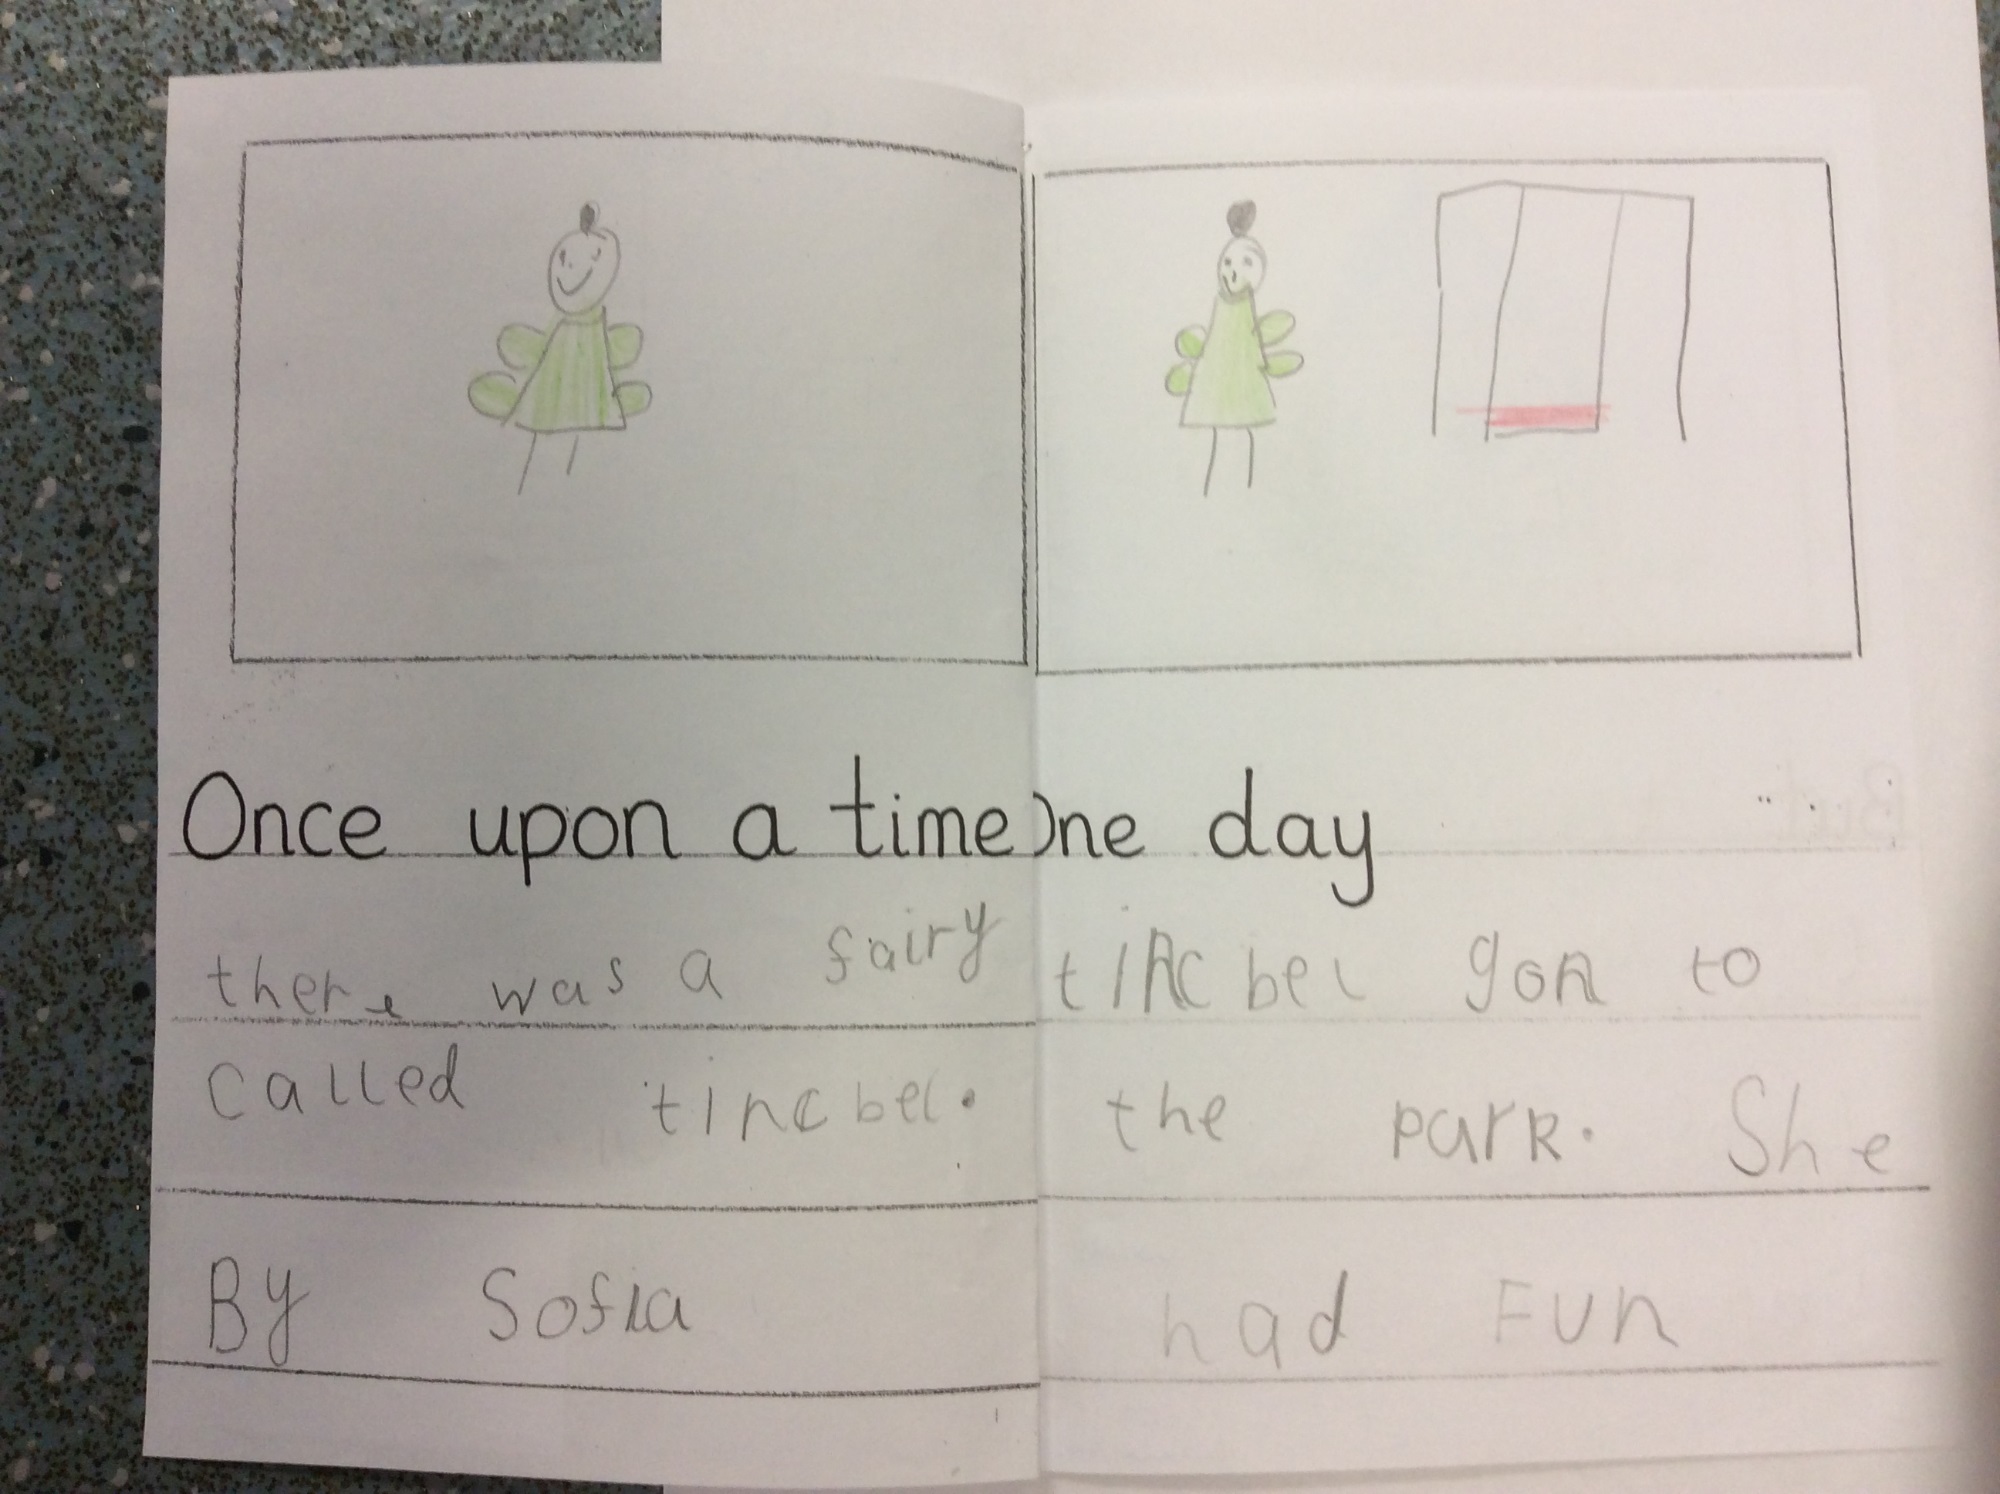 Once upon a time
there was a fairy
called tincbel.
By Sofia
One day
tincbel gon to
the park. She
had Fun